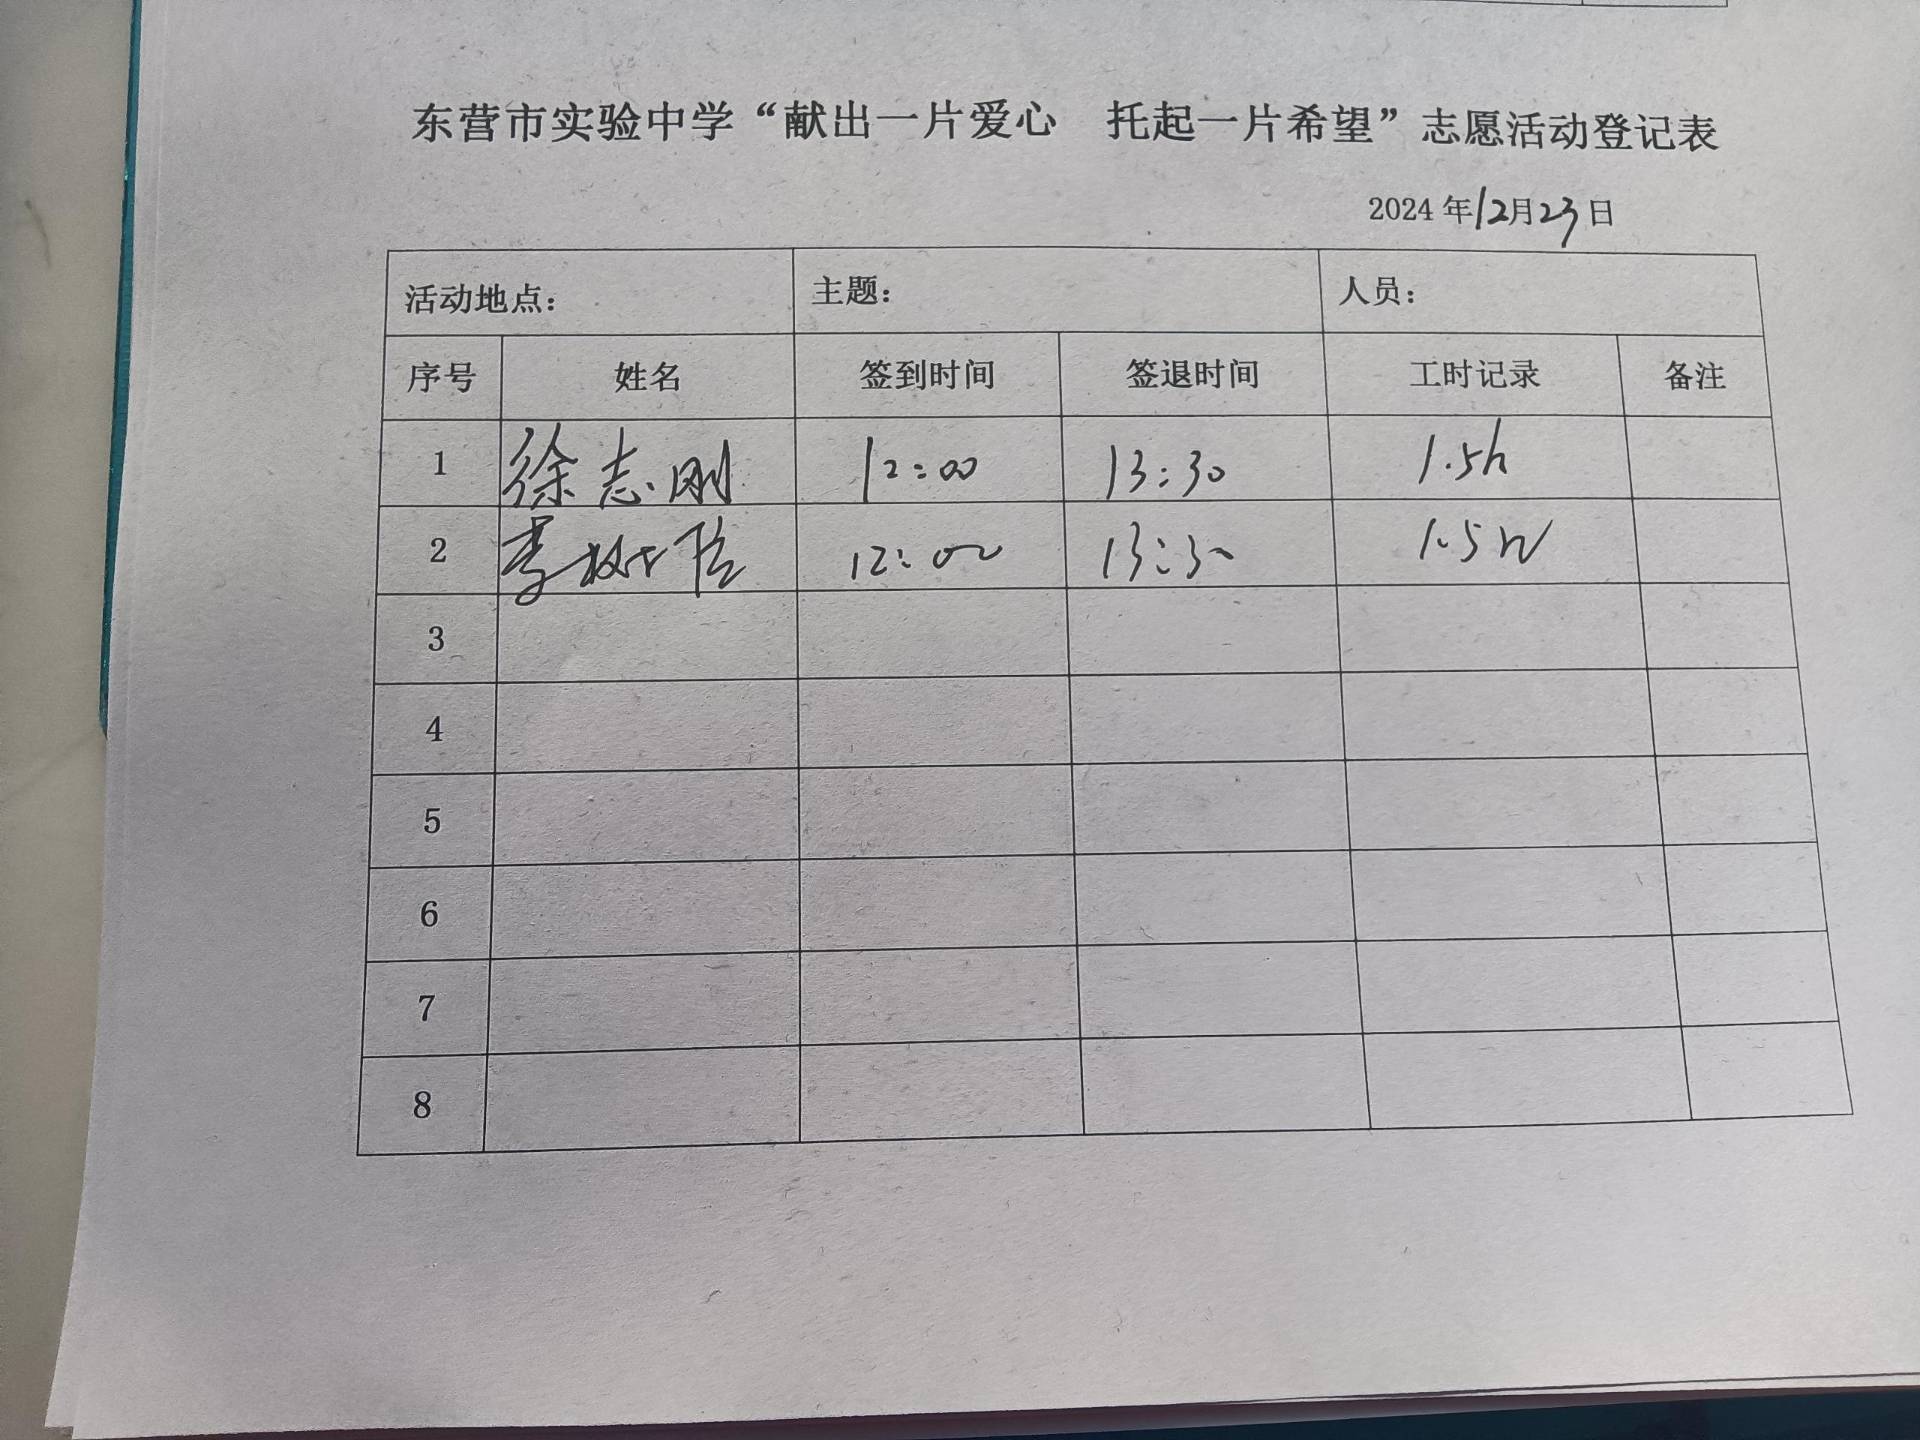 东营市实验中学“献出一片爱心 托起一片希望”志愿活动登记表
2024年12月23日
活动地点： 主题： 人员：
序号 姓名 签到时间 签退时间 工时记录 备注
1 徐志刚 12:00 13:30 1.5h
2 李树 12:00 13:30 1.5h
3
4
5
6
7
8